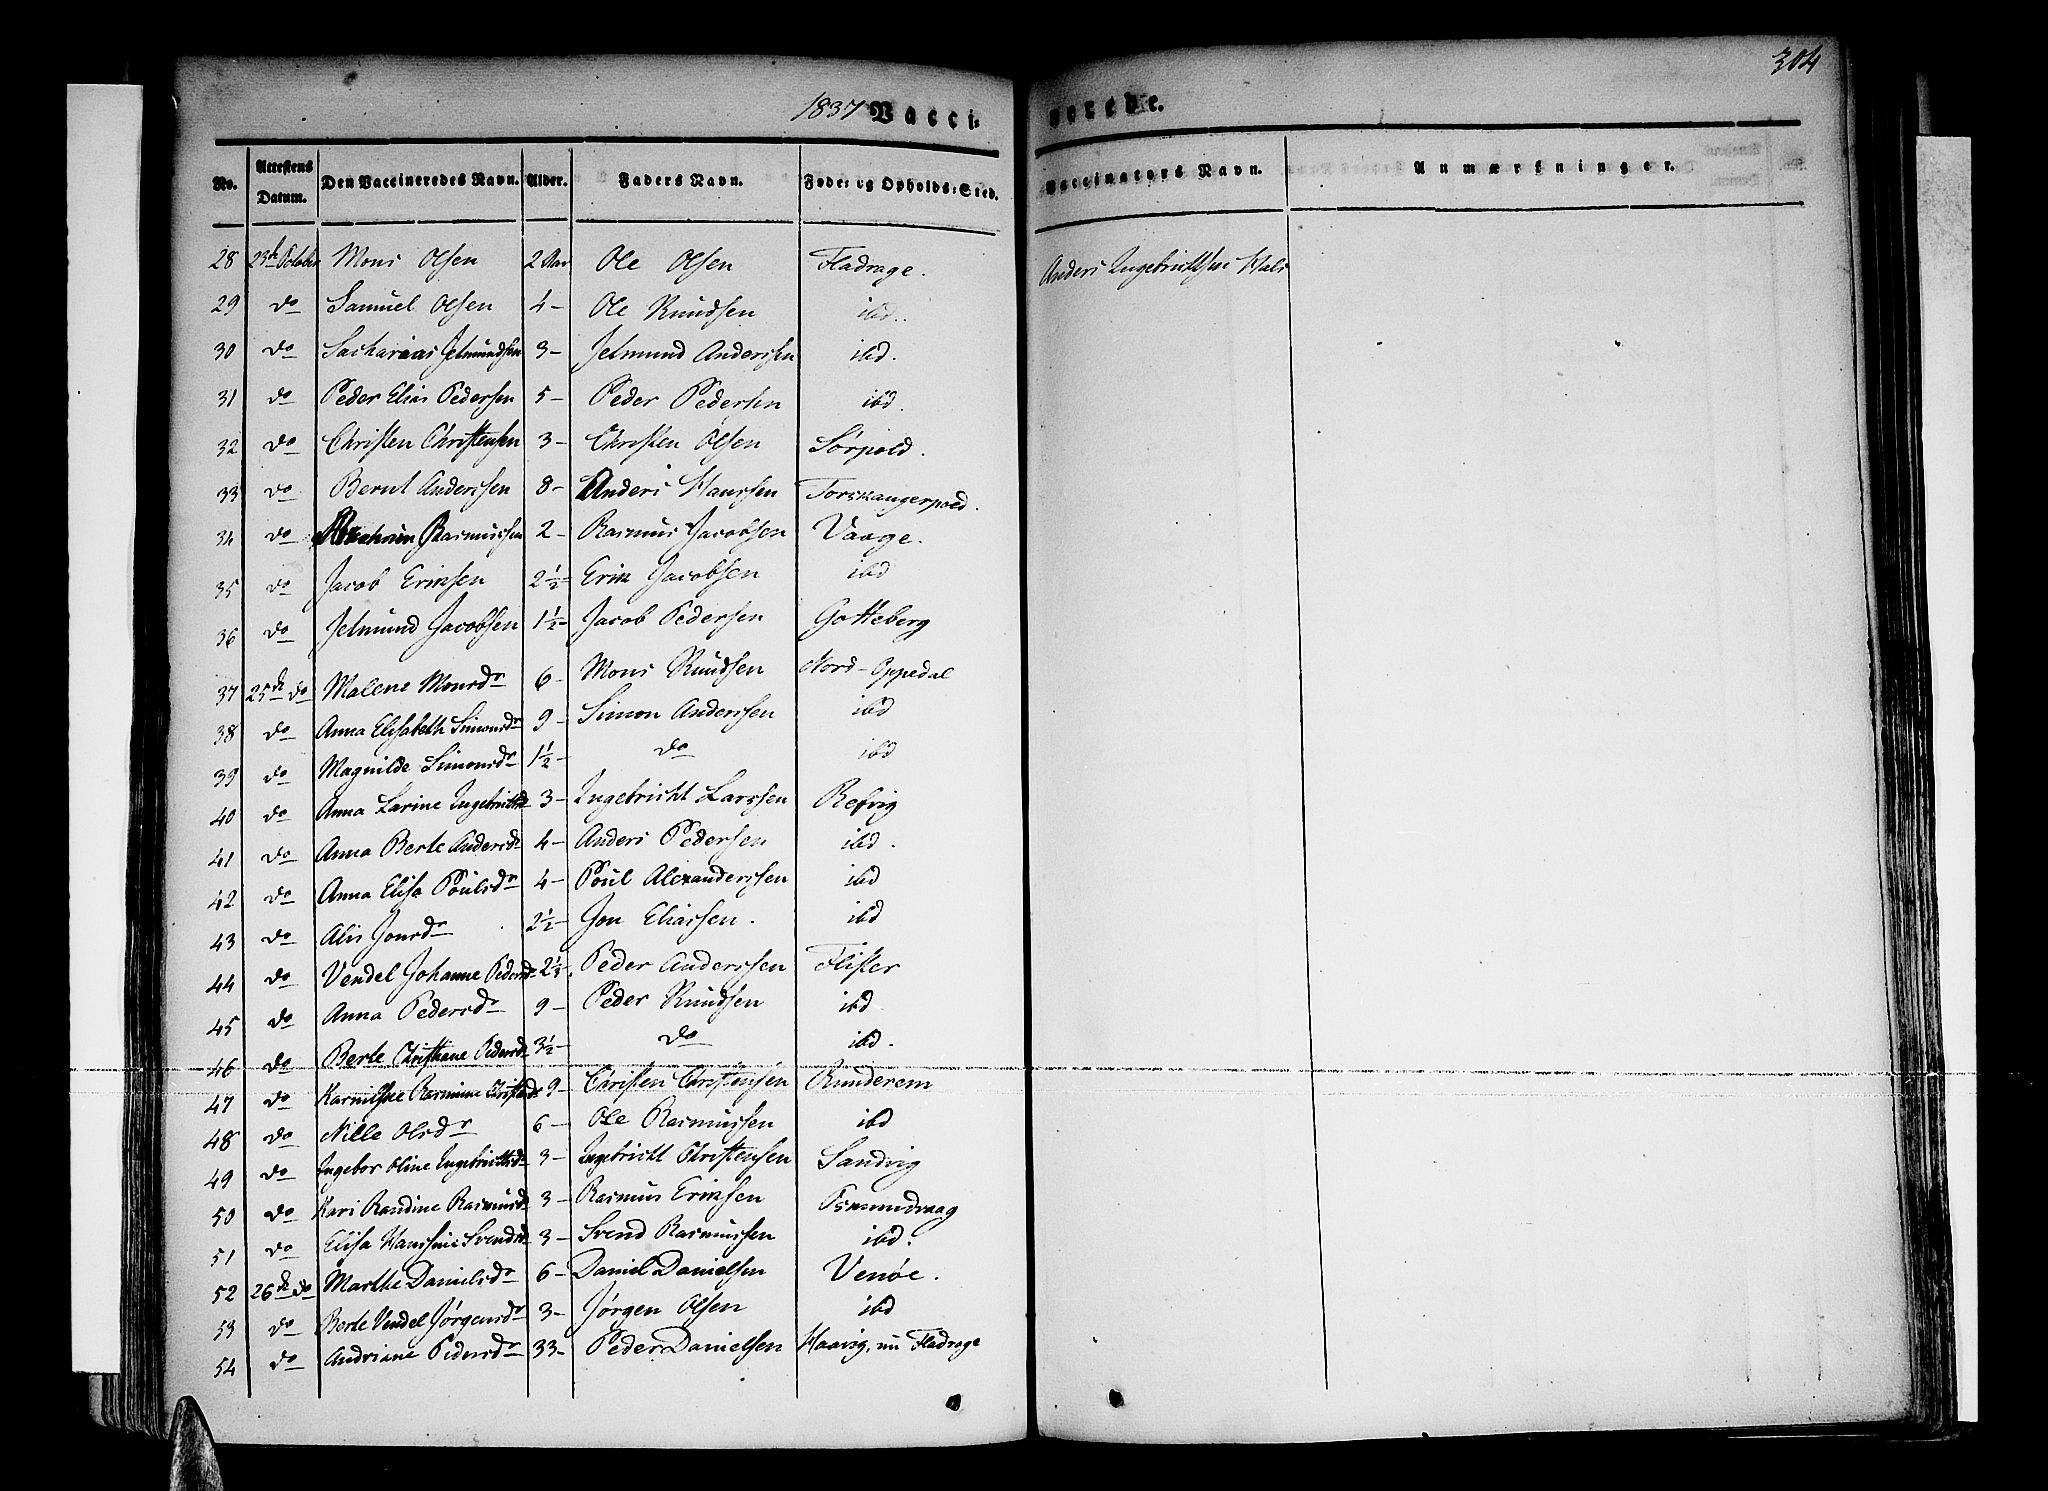 304
1837 Vaccinerede.
No. Attestens Datum. Den Vaccineredes Navn. Alder. Faders Navn. Føde- og Opholds-Sted. Vaccinators Navn. Anmærkninger.
28 23de October Mons Olsen 2 Aar Ole Olsen Fladrage. Anders Ingebrichtsen Hals
29 do Samuel Olsen 4 - Ole Knudsen ibd.
30 do Sacharias Jetmundsen 3 - Jetmund Anderssen ibd.
31 do Peder Elias Pedersen 5 - Peder Pedersen ibd.
32 do Christen Christensen 3 - Christen Olsen Sørpold.
33 do Bernt Anderssen 8 - Anders Hanssen Torskangerpold.
34 do Abraham Rasmussen 2 - Rasmus Jacobsen Vaage.
35 do Jacob Eriksen 2½ - Erik Jacobsen ibd
36 do Jetmund Jacobsen 1½ - Jacob Pedersen Gotteberg
37 25de do Malene Monsdr 6 - Mons Knudsen Nord-Oppedal
38 do Anna Elisabeth Simonsdr 9 - Simon Anderssen ibd
39 do Magnilde Simonsdr 1½ - do ibd
40 do Anna Larine Ingebrichtsd 3 - Ingebricht Larssen Refvig
41 do Anna Berte Andersdr 4 - Anders Pedersen ibd.
42 do Anna Elisa Poulsdr 4 - Poul Alexanderssen ibd
43 do Alis Jonsdr 2½ - Jon Eliassen. ibd
44 do Vendel Johanne Pedersdr 2½. Peder Anderssen Flister
45 do Anna Pedersdr 9 - Peder Knudsen ibd
46 do Berte Christiane Pedersdr 3½ - do ibd.
47 do Rasmine Christensdr 9 - Christen Christensen Runderem
48 do Nille Olsdr 6 - Ole Rasmussen ibd
49 do Ingebor Oline Ingebrichtsdr 3 - Ingebricht Christensen Sandvig
50 do Kari Randine Rasmusdr 3 - Rasmus Eriksen Osmundvaag
51 do Elisa Hanssine Svendsdr 3 - Svend Rasmussen ibd.
52 26de do Marthe Danielsdr 6 - Daniel Danielsen Venøe.
53 do Berte Vendel Jørgensdr 3 - Jørgen Olsen ibd
54 do Andriane Pedersdr 33 - Peder Danielsen Haavig, nu Fladrage